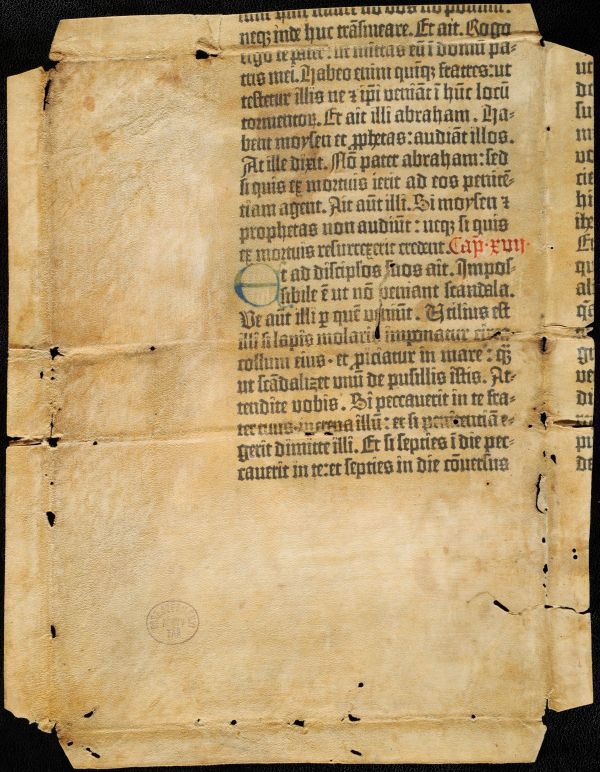 neqꝫ inde huc trãſmeare. Et ait. Rogo
ergo te pater: ut mittas eũ ĩ domũ pa-
tris mei. Habeo enim quinqꝫ fratres: ut
teſtetur illis ne ⁊ ipĩ veniãt ĩ hũc locũ
tormentoꝝ. Et ait illi abraham. Ha-
bent moyſen et ꝓphetas: audiãt illos.
At ille dixit. Nõ pater abraham: ſed
ſi quis ex mortuis ierit ad eos penitẽ-
tiam agent. Ait aũt illi. Si moyſen ⁊
prophetas non audiũt: neqꝫ ſi quis
ex mortuis reſurrexerit credent. Cap̃. xvij.
Et ad diſcip̃los ſuos ait. Impoſ-
ſibile ẽ ut nõ veniant ſcandala.
Ve aũt illi ꝑ quẽ veniũt. Utilius eſt
illi ſi lapis molaris imponatur circa
collum eius. et ꝓiciatur in mare: qꝫ̃
ut ſcãdalizet unũ de puſillis iſtis. At-
tendite vobis. Si peccauerit in te fra-
ter tuus increpa illũ: et ſi penitentiã e-
gerit dimitte illi. Et ſi ſepties ĩ die pec-
cauerit in te: et ſepties in die cõuerſus